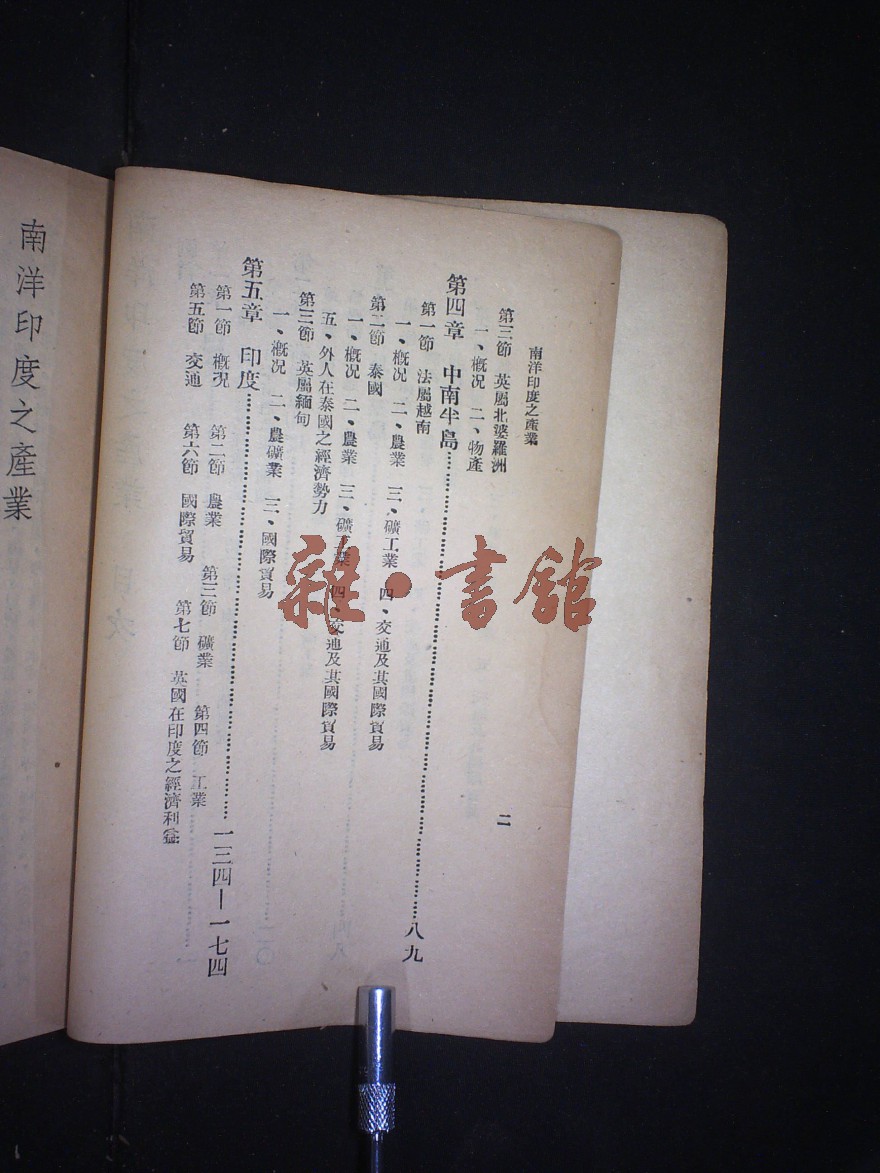 南洋印度之產業
二
第三節 英屬北婆羅洲
一、概況 二、物產
第四章 中南半島……八九
第一節 法屬越南
一、概況 二、農業 三、礦工業 四、交通及其國際貿易
第二節 泰國
一、概況 二、農業 三、礦工業 四、交通及其國際貿易
五、外人在泰國之經濟勢力
第三節 英屬緬甸
一、概況 二、農礦業 三、國際貿易
第五章 印度……一三四—一七四
第一節 概況 第二節 農業 第三節 礦業 第四節 工業
第五節 交通 第六節 國際貿易 第七節 英國在印度之經濟利益
南洋印度之產業
雜·書館